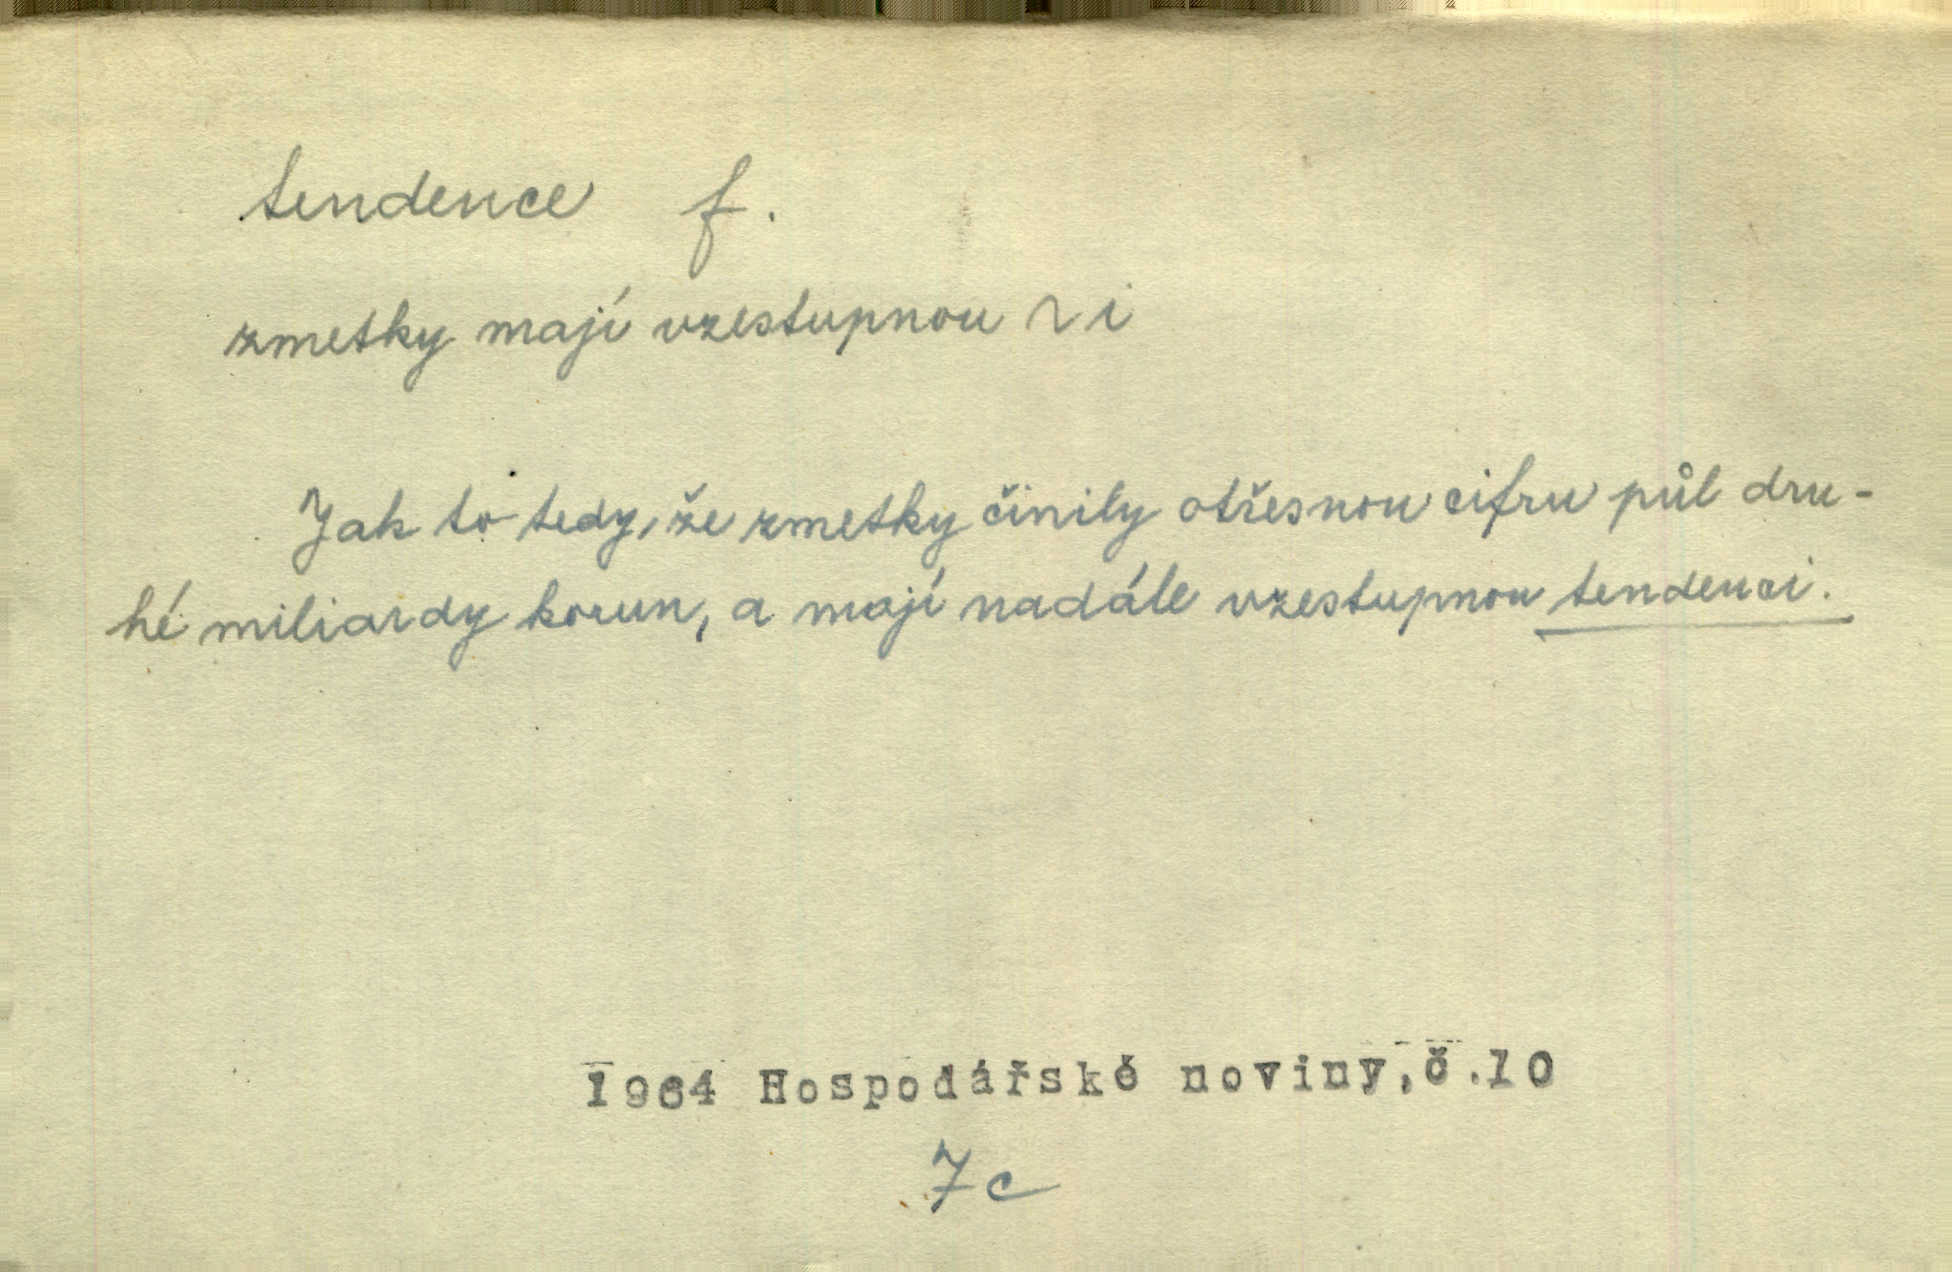 tendence f.
zmetky mají vzestupnou ~i
Jak to tedy, že zmetky činily otřesnou cifru půl dru-
hé miliardy korun, a mají nadále vzestupnou tendenci.
1964 Hospodářské noviny, č.10
7c